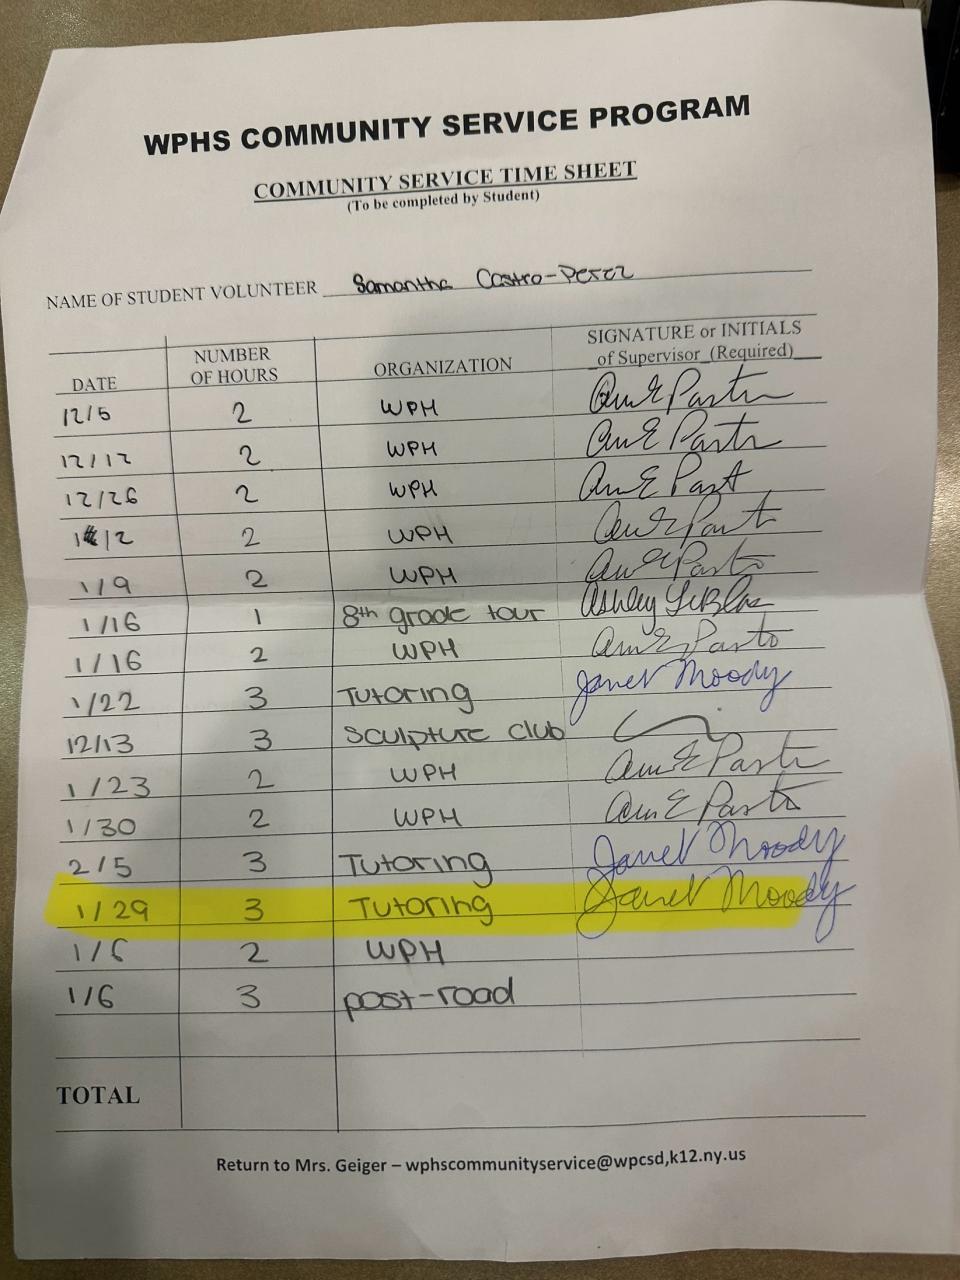 WPHS COMMUNITY SERVICE PROGRAM
COMMUNITY SERVICE TIME SHEET
(To be completed by Student)
NAME OF STUDENT VOLUNTEER Samantha Castro-Perez
DATE NUMBER OF HOURS ORGANIZATION SIGNATURE or INITIALS of Supervisor (Required)
12/5 2 WPH
12/12 2 WPH
12/26 2 WPH
1/2 2 WPH
1/9 2 WPH
1/16 1 8th grade tour Ashley
1/16 2 WPH
1/22 3 Tutoring Janet Moody
12/13 3 Sculpture club
1/23 2 WPH
1/30 2 WPH
2/5 3 Tutoring Janet Moody
1/29 3 Tutoring Janet Moody
1/6 2 WPH
1/6 3 post-road
TOTAL
Return to Mrs. Geiger – wphscommunityservice@wpcsd,k12.ny.us